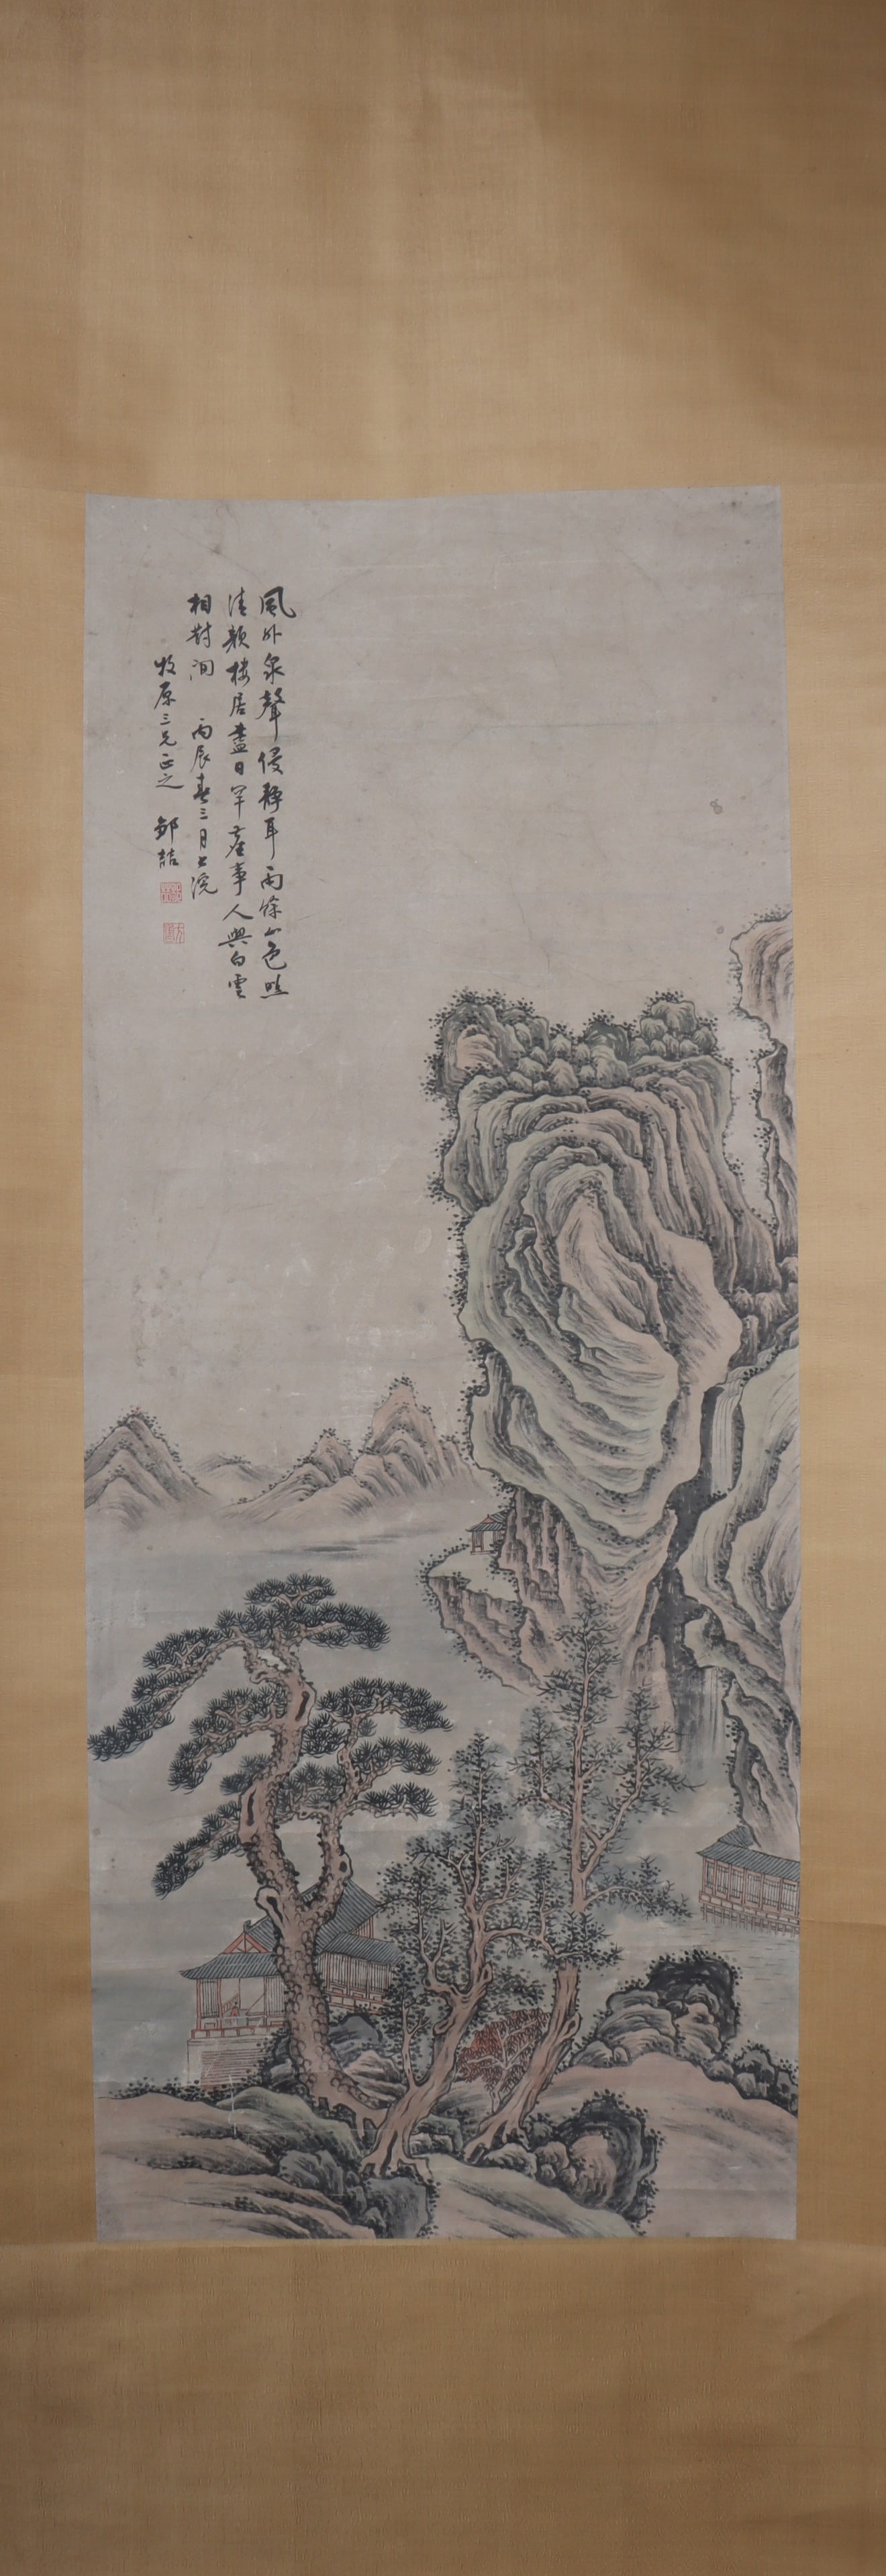 風外泉聲侵靜耳雨餘山色照
清顏樓居盡日罕塵事人與白雲
相對閒 丙辰春三月上浣
牧原三兄正之 鄒喆